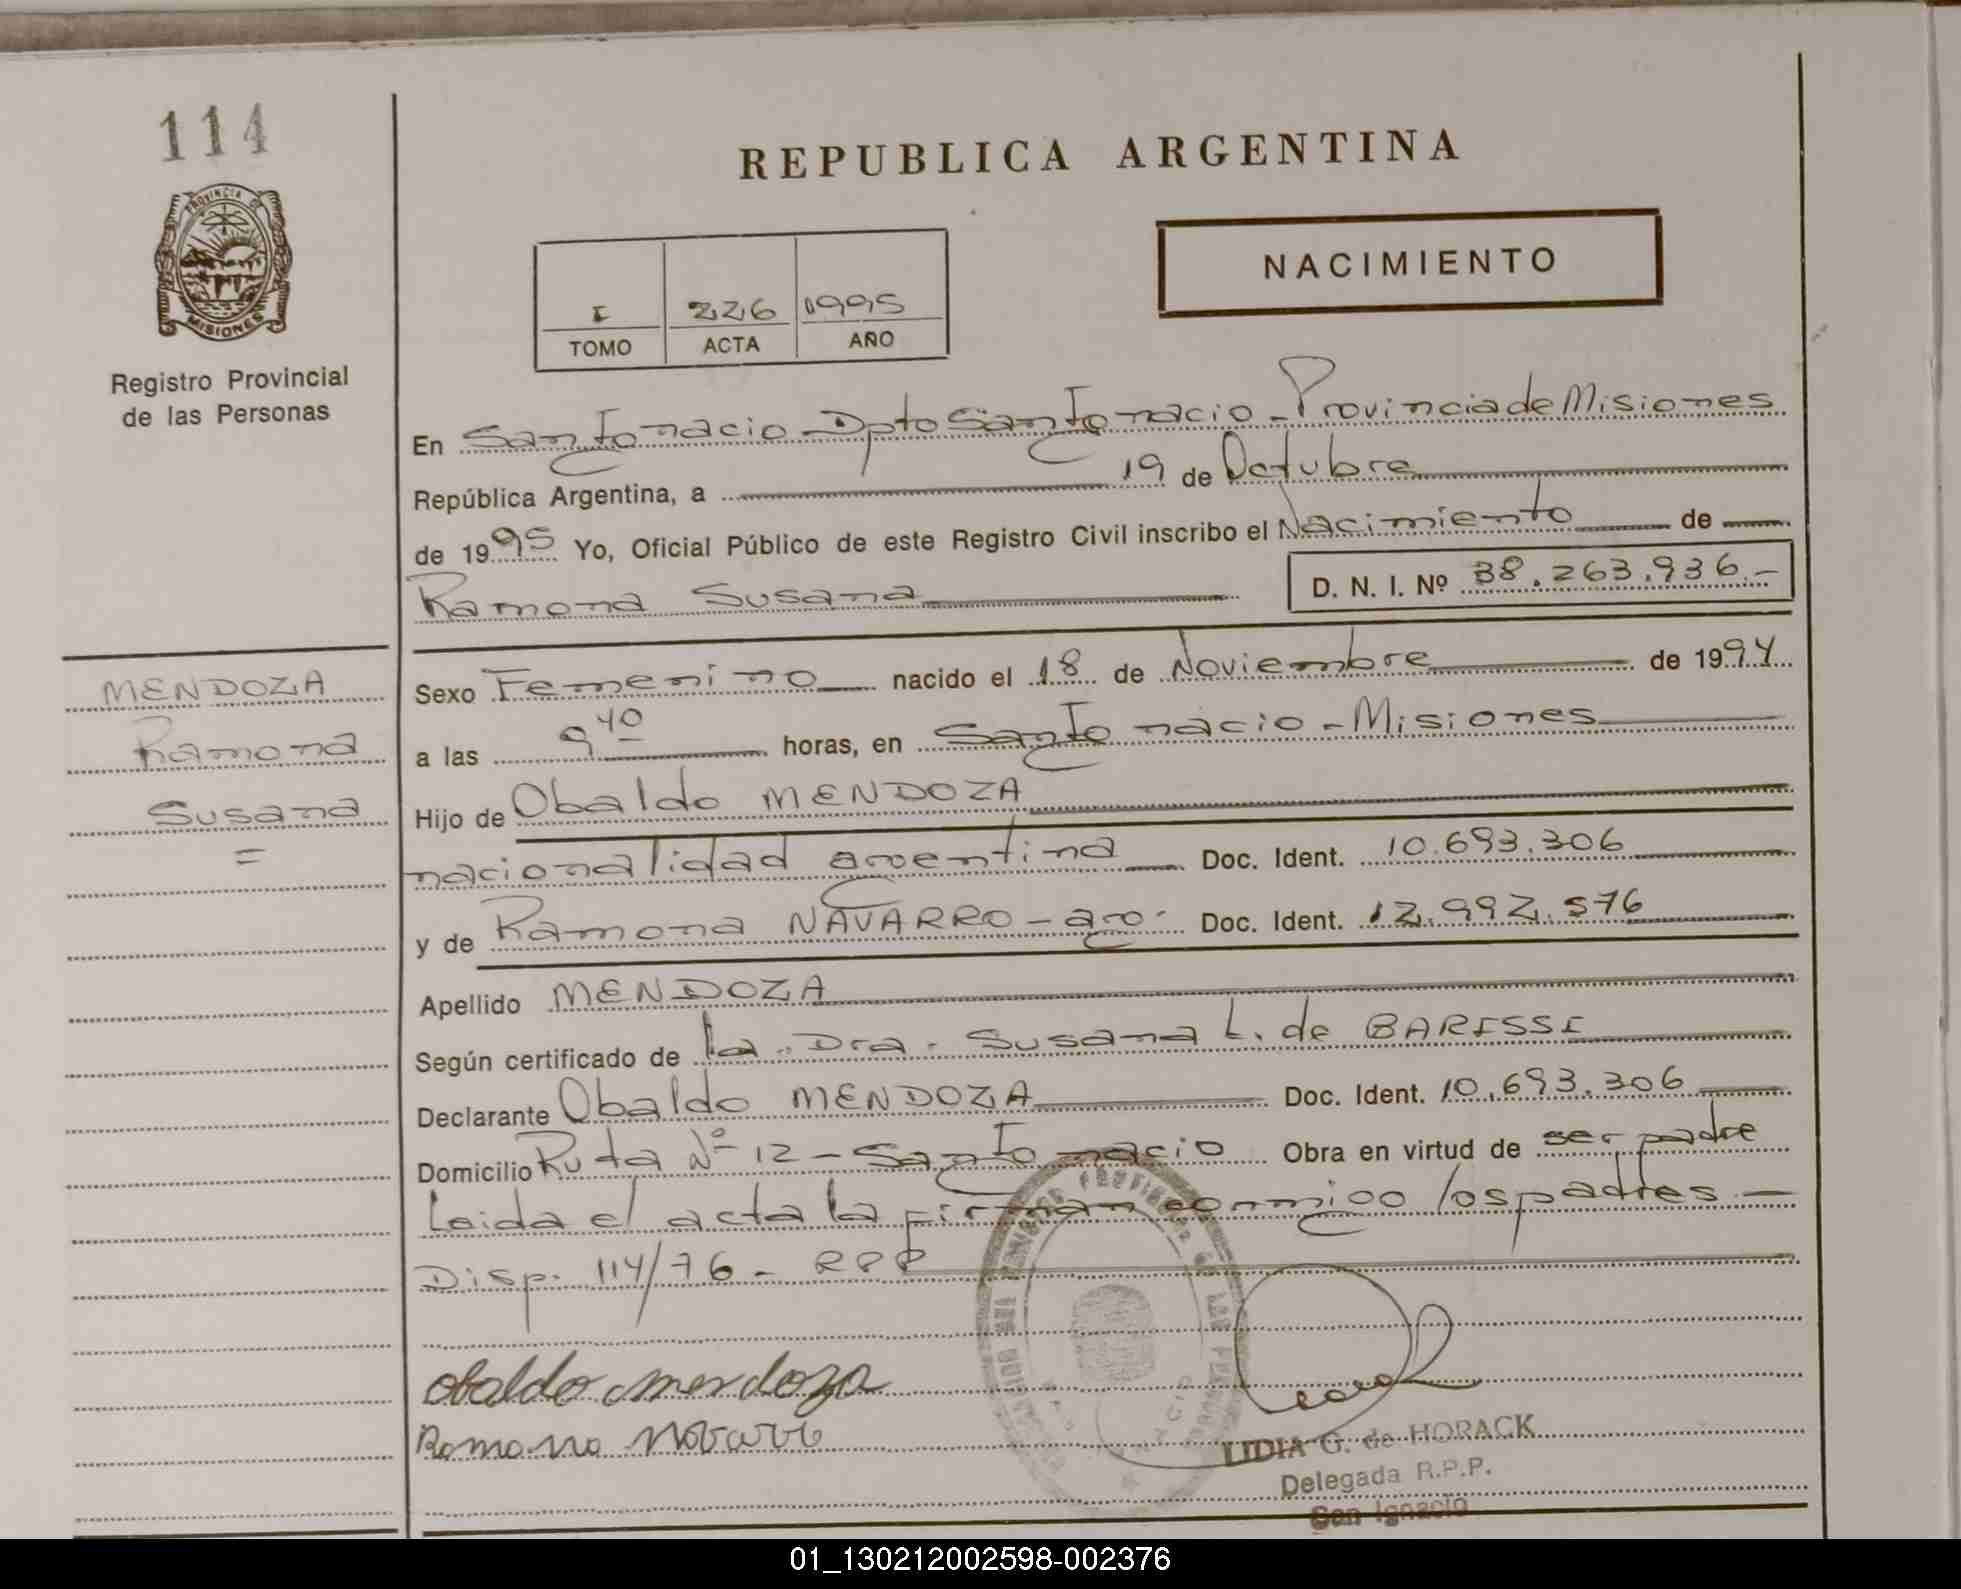 114
PROVINCIA DE
MISIONES
Registro Provincial
de las Personas
REPUBLICA ARGENTINA
NACIMIENTO
I 226 1995
TOMO ACTA AÑO
En San Ignacio - Dpto San Ignacio - Provincia de Misiones
República Argentina, a 19 de Octubre
de 1995 Yo, Oficial Público de este Registro Civil inscribo el Nacimiento de
Ramona Susana D. N. I. Nº 38.263.936.-
MENDOZA
Ramona
Susana
=
Sexo Femenino nacido el 18 de Noviembre de 1994
a las 9 40 horas, en San Ignacio - Misiones
Hijo de Obaldo MENDOZA
nacionalidad argentina Doc. Ident. 10.693.306
y de Ramona NAVARRO - arg. Doc. Ident. 12.992.576
Apellido MENDOZA
Según certificado de la Dra. Susana L. de BARISSI
Declarante Obaldo MENDOZA Doc. Ident. 10.693.306
Domicilio Ruta Nº 12 - San Ignacio Obra en virtud de ser padre
Leida el acta la firman conmigo los padres -
Disp. 114/76 - RPP
obaldo mendoza
Ramona Navarro
LIDIA G. de HORACK
Delegada R.P.P.
San Ignacio
01_130212002598-002376